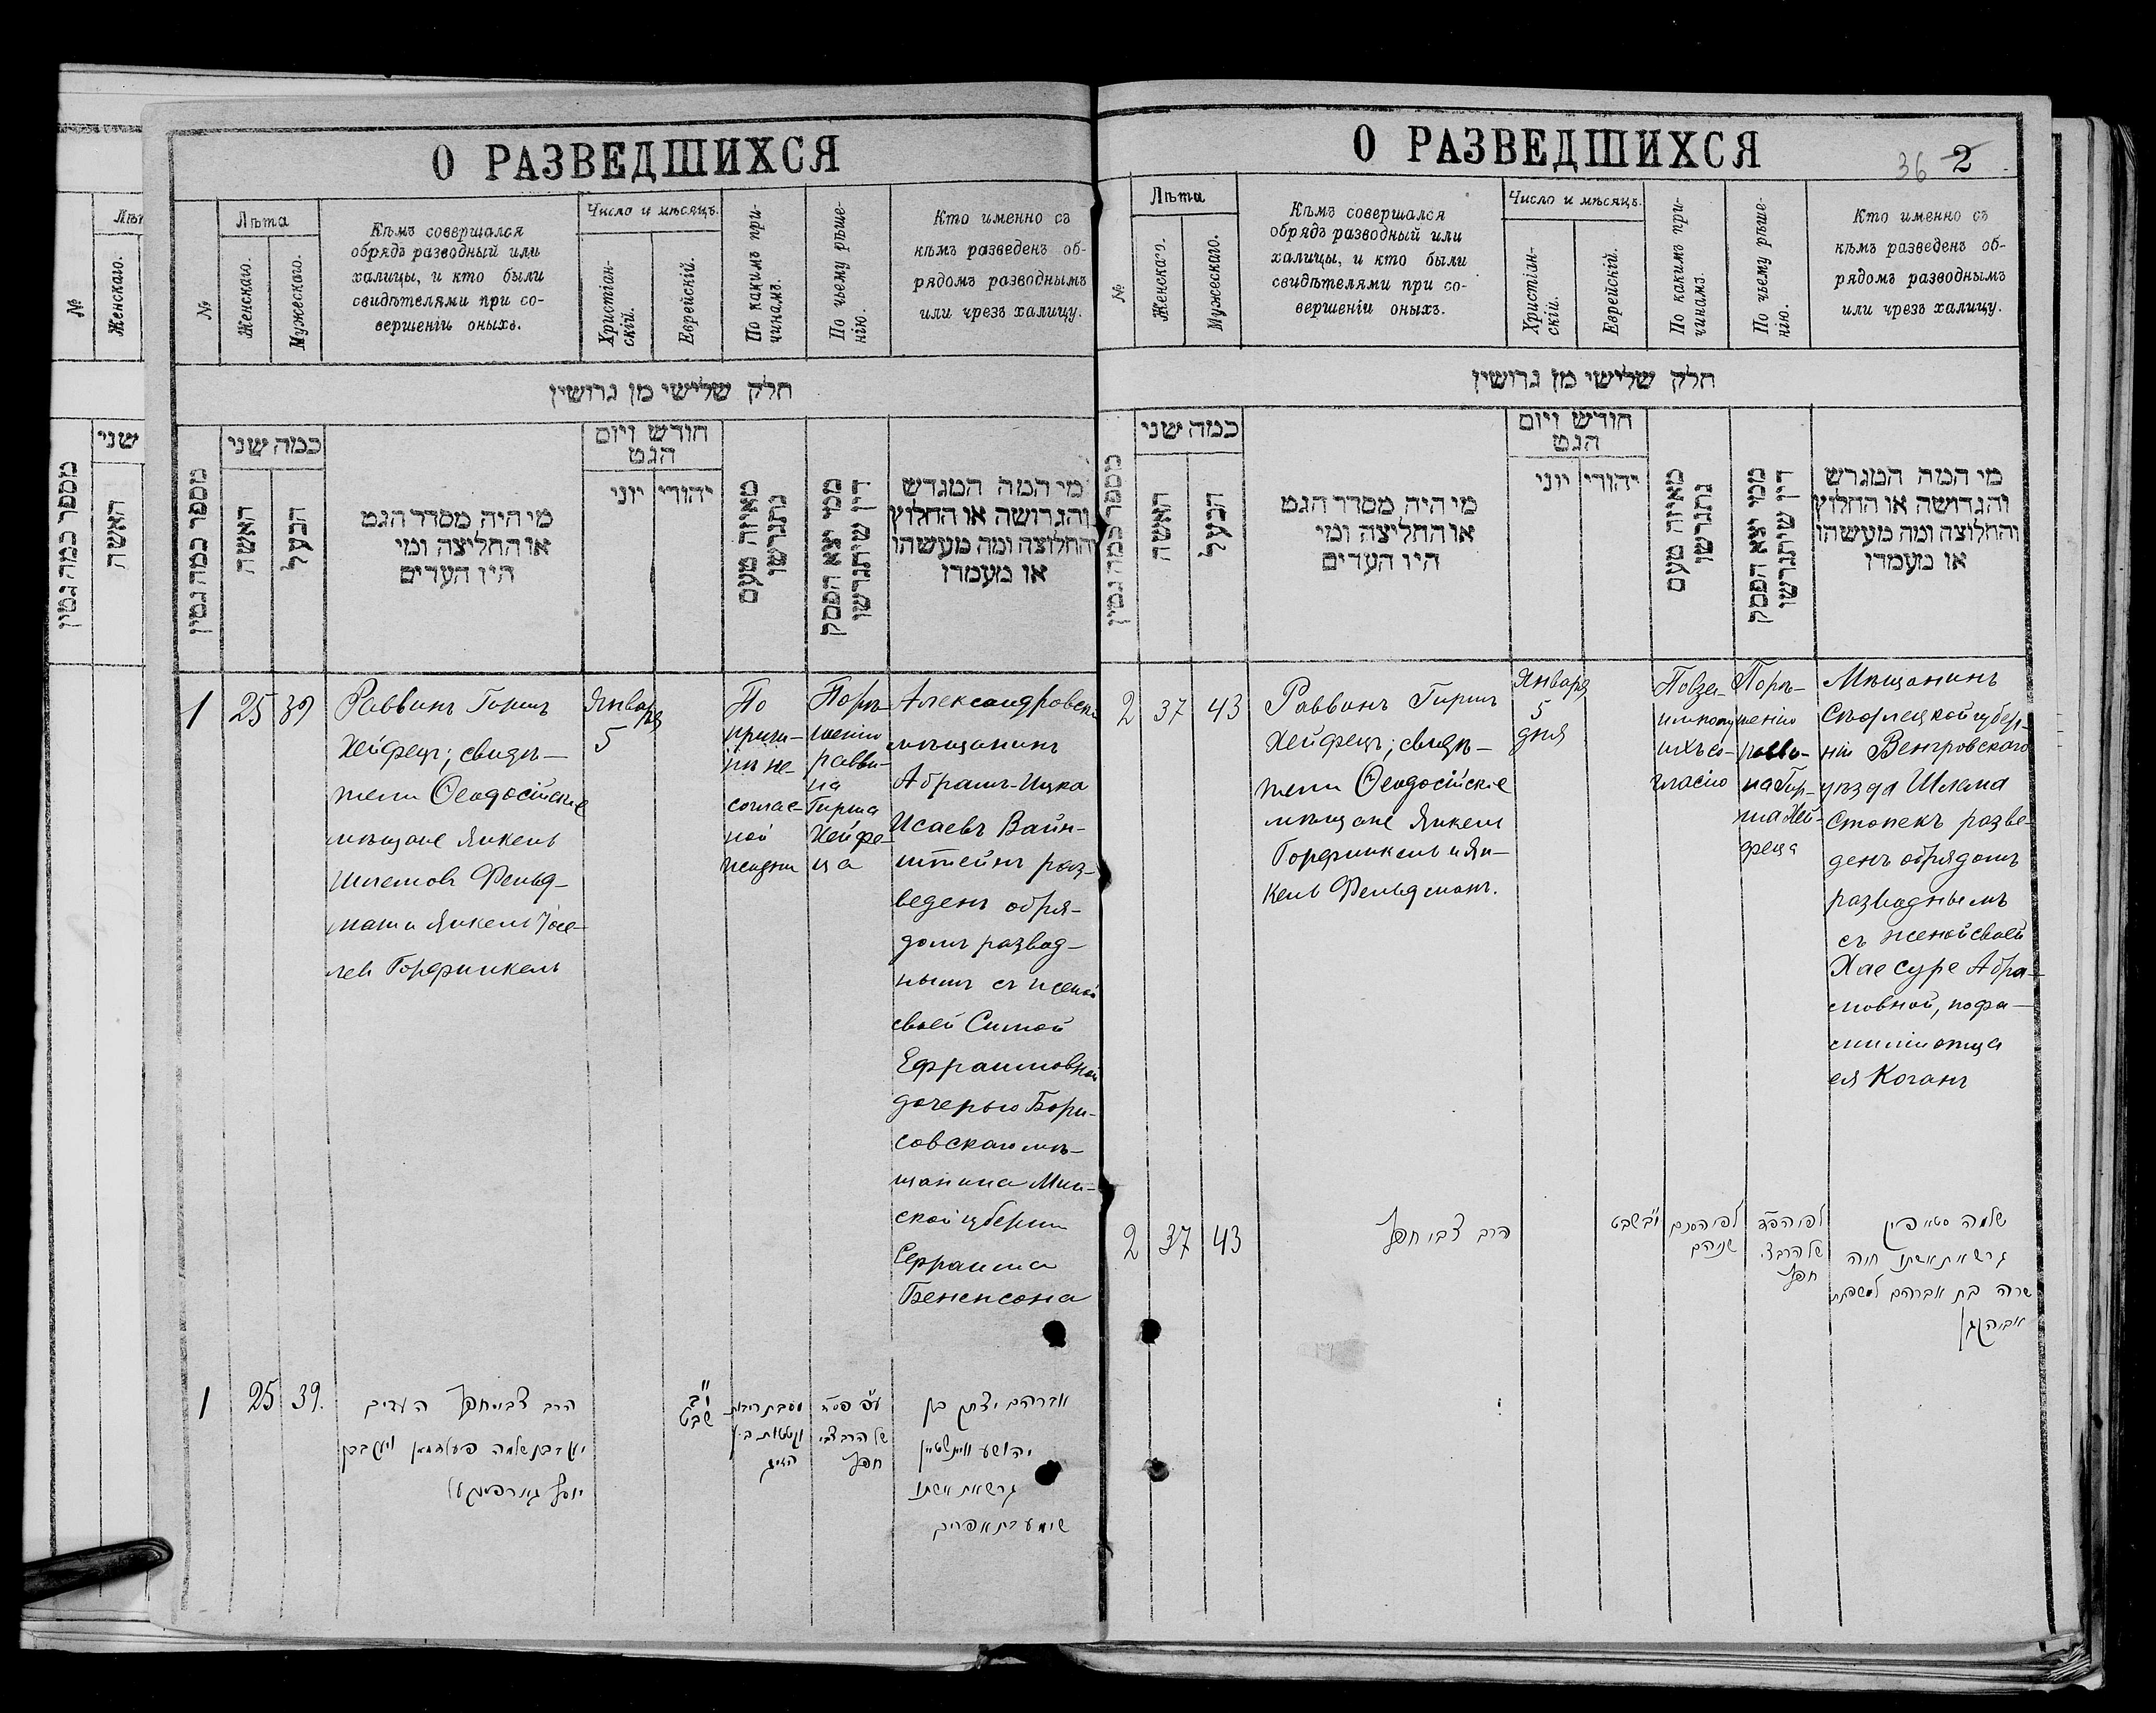 О РАЗВЕДШИХСЯ
№
Лѣта
Женскаго.
Мужескаго.
Кѣмъ совершался
обрядъ разводный или
халицы, и кто были
свидѣтелями при со-
вершеніи оныхъ.
Число и мѣсяцъ.
Христіан-
скій.
Еврейскій.
По какимъ при-
чинамъ.
По чьему рѣше-
нію.
Кто именно съ
кѣмъ разведенъ об-
рядомъ разводнымъ
или чрезъ халицу.
חלק שלישי מן גרושין
מספר כמה גטין
כמה שני
האשה
הבעל
מי היה מסדר הגט
או החליצה ומי
היו העדים
חודש ויום
הגט
יוני
יהודי
מאיזה טעם
נתגרשו
ממי יצא הפסק
דין שיתגרשו
מי המה המגרש
והגרושה או החלוץ
והחלוצה ומה מעשהו
או מעמדו
1
25
39
Раввинъ Гиршъ
Хейфецъ; свидѣ-
тели Ѳеодосійскіе
мѣщане Янкель
Шлемовъ Фельд-
манъ и Янкель Іосе-
левъ Горфинкель
Января
5
По
причи-
нѣ не-
соглас-
ной
жизни
По рѣ-
шенію
равви-
на
Гирша
Хейфе-
ца
Александровскій
мѣщанинъ
Абрамъ-Ицка
Исаевъ Вайн-
штейнъ раз-
веденъ обря-
домъ развод-
нымъ съ женой
своей Симой
Ефраимовной
дочерью Бори-
совскаго мѣ-
щанина Мин-
ской губерніи
Ефраима
Бененсона
1
25
39.
הרב צבי חפץ העדים
יעקב בן שלמה פעלדמאן ויעקב בן
יוסף גארפינקעל
י"ב
שבט
מסבת מריבות
וקטטות
ע"פ פסק
של הרב צבי
חפץ
אברהם יצחק בן
יהושע ווינשטיין
גרש את אשתו
סימע בת אפרים
О РАЗВЕДШИХСЯ
36 2
№
Лѣта
Женскаго.
Мужескаго.
Кѣмъ совершался
обрядъ разводный или
халицы, и кто были
свидѣтелями при со-
вершеніи оныхъ.
Число и мѣсяцъ.
Христіан-
скій.
Еврейскій.
По какимъ при-
чинамъ.
По чьему рѣше-
нію.
Кто именно съ
кѣмъ разведенъ об-
рядомъ разводнымъ
или чрезъ халицу.
חלק שלישי מן גרושין
מספר כמה גטין
כמה שני
האשה
הבעל
מי היה מסדר הגט
או החליצה ומי
היו העדים
חודש ויום
הגט
יוני
יהודי
מאיזה טעם
נתגרשו
ממי יצא הפסק
דין שיתגרשו
מי המה המגרש
והגרושה או החלוץ
והחלוצה ומה מעשהו
או מעמדו
2
37
43
Раввинъ Гиршъ
Хейфецъ; свидѣ-
тели Ѳеодосійскіе
мѣщане Янкель
Горфинкель и Ян-
кель Фельдманъ.
Января
5
дня
По вза-
имному
ихъ со-
гласію
По рѣ-
шенію
равви-
на Гир-
ша Хей-
феца
Мѣщанинъ
Сѣдлецкой губер-
ніи Венгровскаго
уѣзда Шлема
Стопекъ разве-
денъ обрядомъ
разводнымъ
съ женой своей
Хае Суре Абра-
мовной, по фа-
миліи отца
ея Коганъ
2
37
43
הרב צבי חפץ
י"ב שבט
לפי הסכם
שניהם
לפי הפסק
של הרב צבי
חפץ
שלמה
גרש את אשתו חיה
שרה בת אברהם למשפחת
אביה כגן